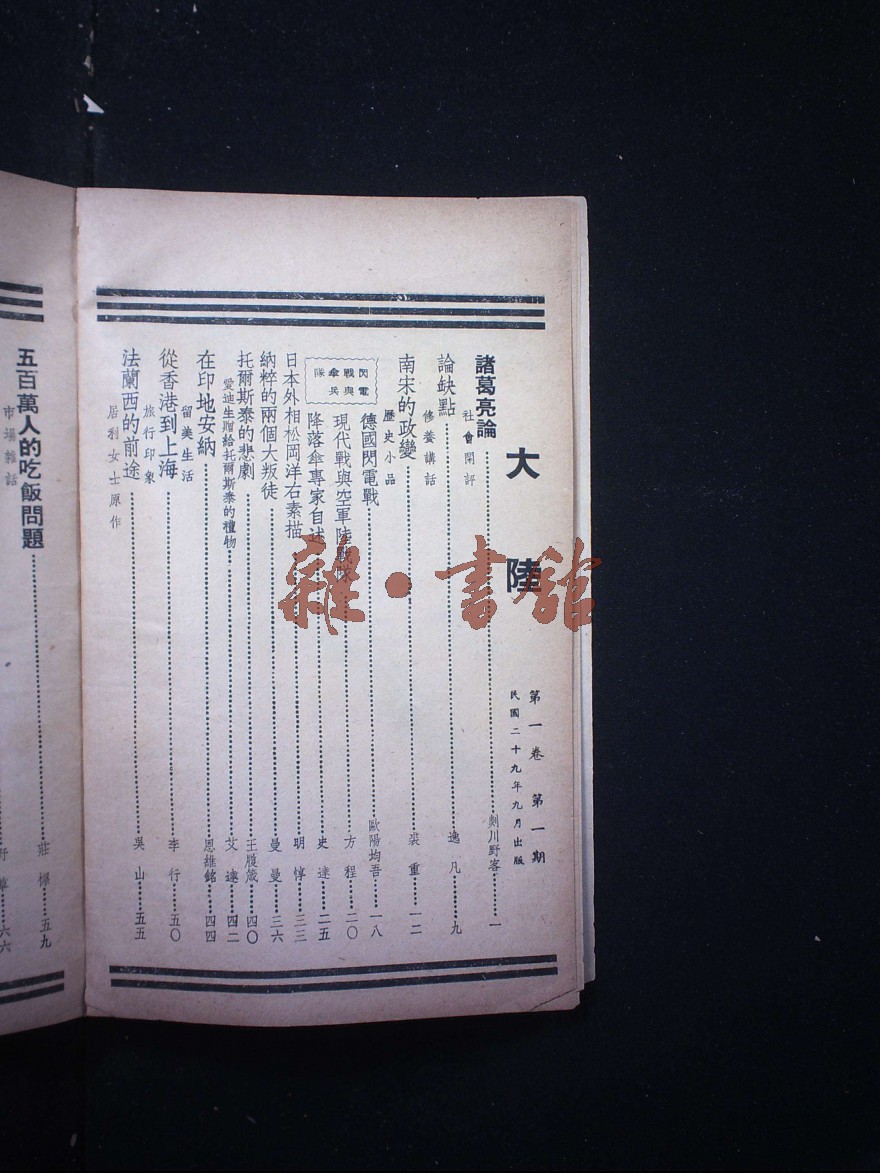 大陸
第一卷 第一期
民國二十九年九月出版
諸葛亮論 劍川野客 一
社會閑評
論缺點 逸凡 九
修養講話
南宋的政變 裴重 一二
歷史小品
閃電戰與傘兵隊
德國閃電戰 歐陽均吾 一八
現代戰與空軍陸戰隊 方程 二〇
降落傘專家自述 史達 二五
日本外相松岡洋右素描 明惇 三三
納粹的兩個大叛徒 曼曼 三六
托爾斯泰的悲劇 王履箴 四〇
愛迪生贈給托爾斯泰的禮物 艾達 四二
在印地安納 恩維銘 四四
留美生活
從香港到上海 李行 五〇
旅行印象
法蘭西的前途 吳山 五五
居利女士原作
五百萬人的吃飯問題 莊 五九
市場雜話
六六
雜·書館